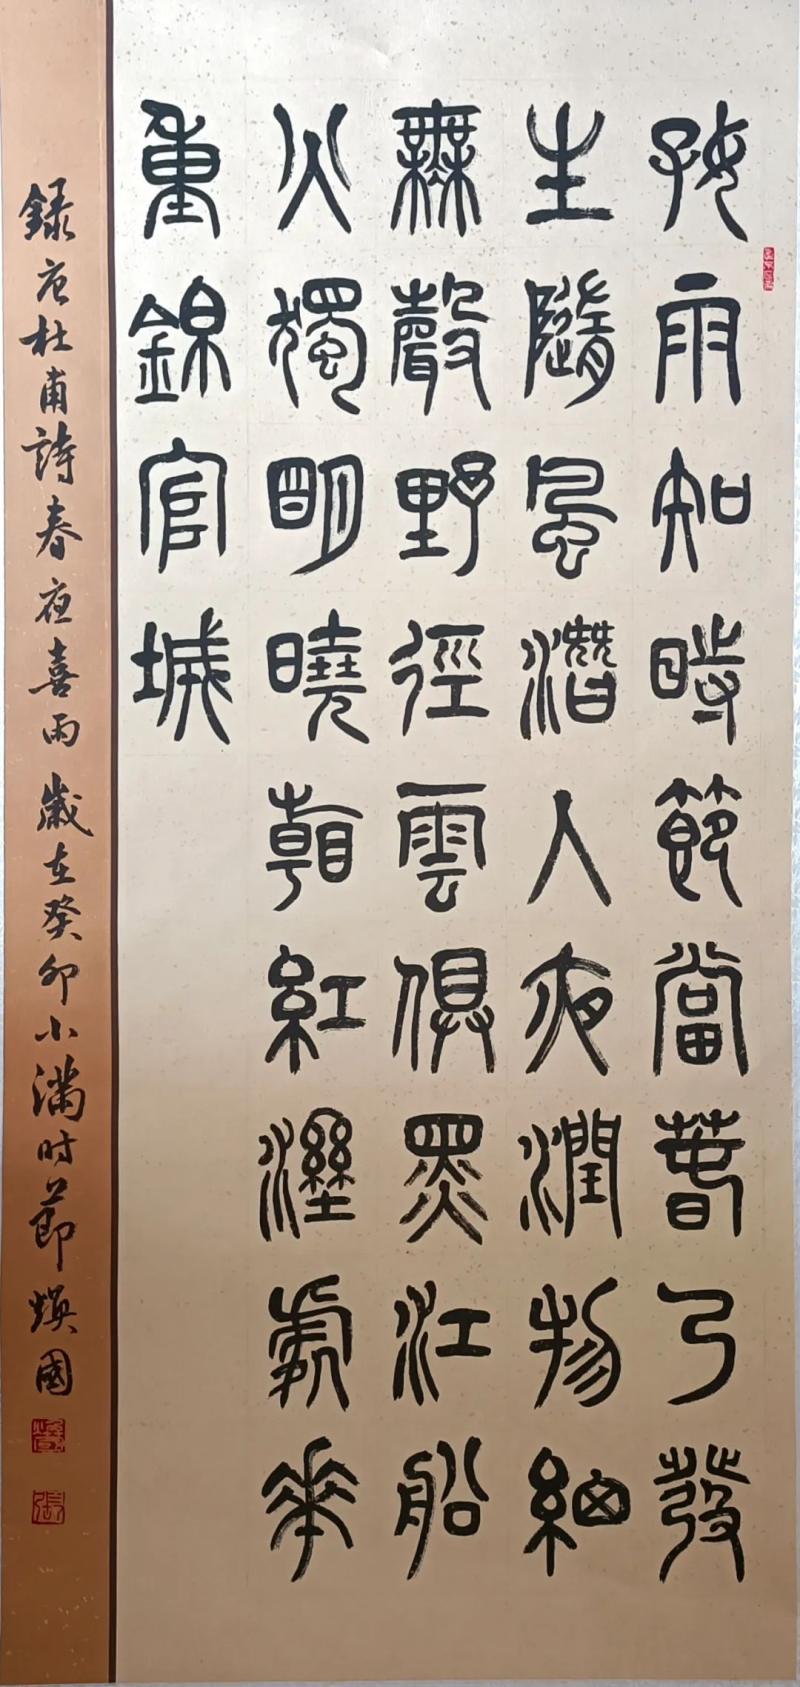 好雨知時節當春乃發
生隨風潛入夜潤物細
無聲野徑雲俱黑江船
火獨明曉看紅溼處花
重錦官城
録唐杜甫詩春夜喜雨歲在癸卯小滿时節煥國